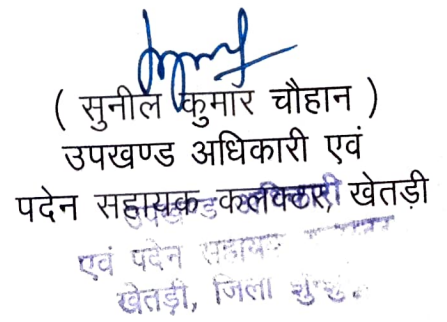 ( सुनील कुमार चौहान )
उपखण्ड अधिकारी एवं
पदेन सहायक कलक्टर, खेतड़ी
एवं पदेन सहायक
खेतड़ी, जिला